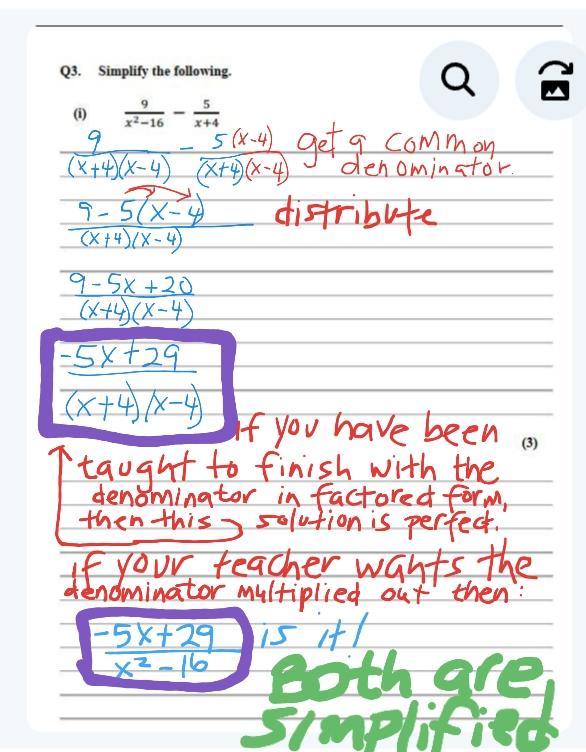 Q3. Simplify the following.
(i) 9/(x²−16) − 5/(x+4)
9/((x+4)(x-4)) - 5(x-4)/((x+4)(x-4)) get a common
denominator.
9-5(x-4)/((x+4)(x-4)) distribute
9-5x+20/((x+4)(x-4))
-5x+29/((x+4)(x-4))
if you have been
(3)
taught to finish with the
denominator in factored form,
then this solution is perfect.
if your teacher wants the
denominator multiplied out then:
-5x+29/(x²-16) is it!
Both are
simplified